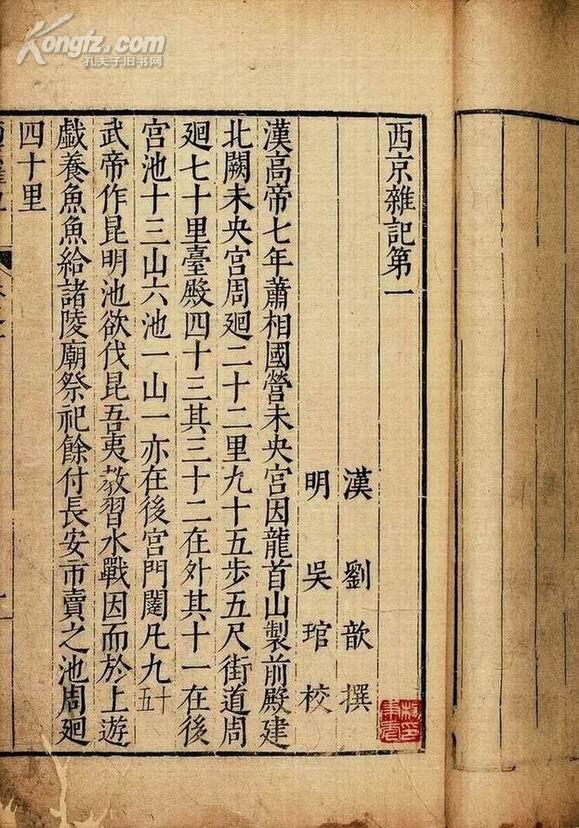 Kongfz.com
孔夫子旧书网
西京雜記第一
漢 劉歆 撰
明 吳琯 校
漢高帝七年蕭相國營未央宮因龍首山製前殿建
北闕未央宮周廻二十二里九十五步五尺街道周
廻七十里臺殿四十三其三十二在外其十一在後
宮池十三山六池一山一亦在後宮門闥凡九十五
武帝作昆明池欲伐昆吾夷教習水戰因而於上遊
戲養魚魚給諸陵廟祭祀餘付長安市賣之池周廻
四十里